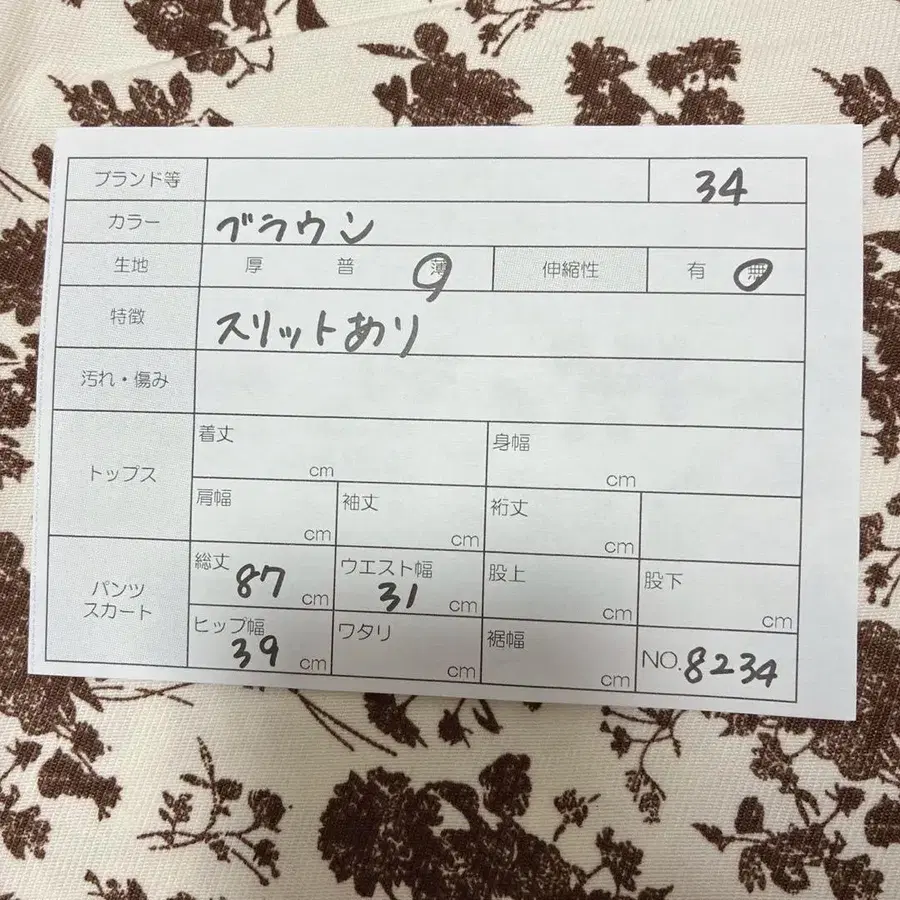 ブランド等 34
カラー ブラウン
生地 厚 普 薄 伸縮性 有 無
特徴 スリットあり
汚れ・傷み
トップス
着丈 cm 身幅 cm
肩幅 cm 袖丈 cm 裄丈 cm
パンツ
スカート
総丈 87 cm ウエスト幅 31 cm 股上 cm 股下 cm
ヒップ幅 39 cm ワタリ cm 裾幅 cm NO.8234